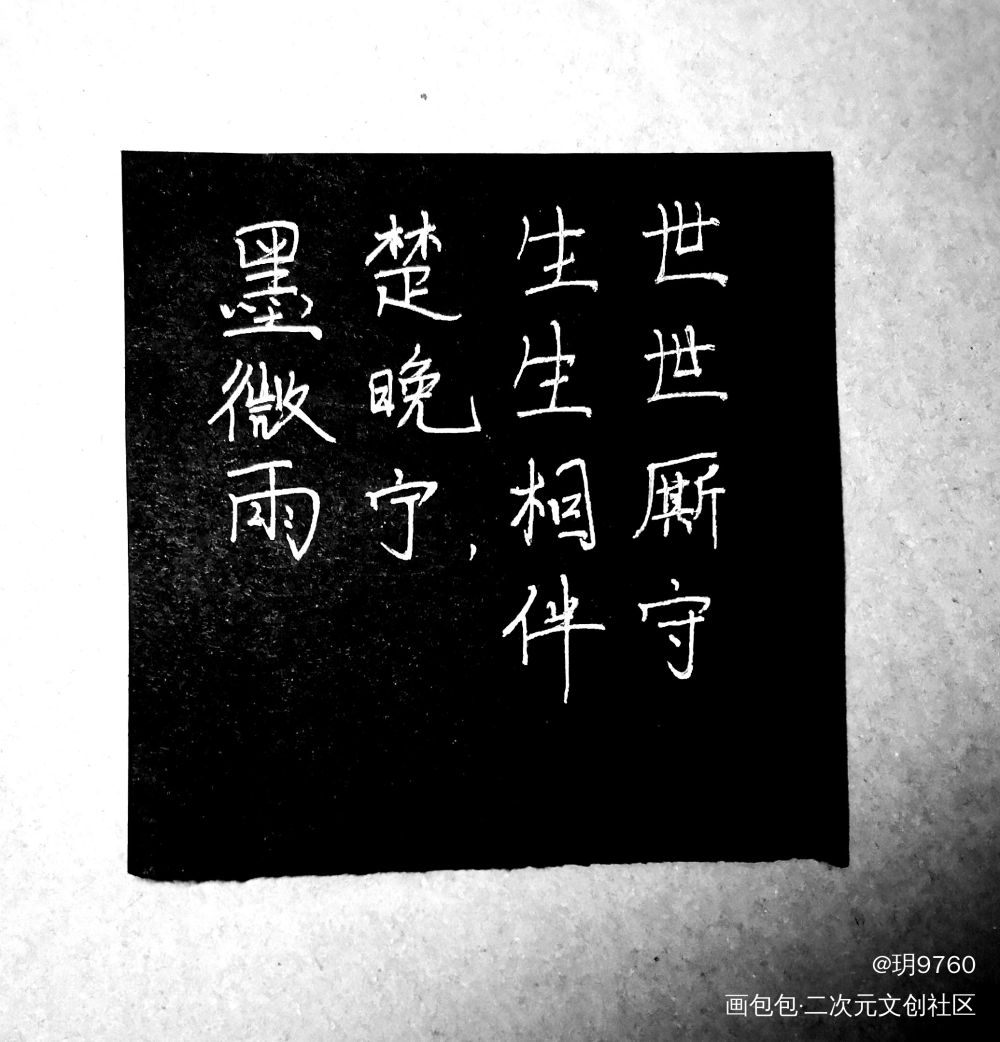 世世厮守
生生相伴
楚晚宁，
墨微雨
@玥9760
画包包·二次元文创社区